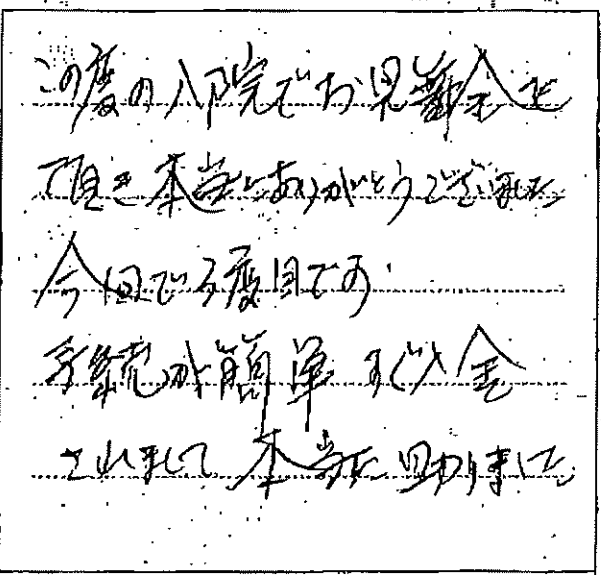 この度の入院でお見舞金を
頂き本当にありがとうございました
今回で3度目です.
手続が簡単 すぐ入金
されまして 本当に助かりました